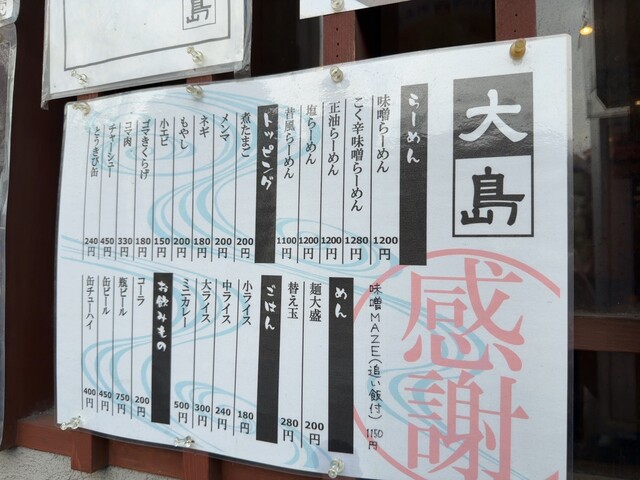 大島
感謝
らーめん
味噌らーめん 1200円
こく辛味噌らーめん 1280円
正油らーめん 1200円
塩らーめん 1200円
昔風らーめん 1100円
トッピング
煮たまご 200円
メンマ 200円
ネギ 180円
もやし 200円
小エビ 150円
ゴマきくらげ 180円
コマ肉 330円
チャーシュー 450円
とうきび缶 240円
味噌MAZE(追い飯付) 1150円
めん
麺大盛 200円
替え玉 280円
ごはん
小ライス 180円
中ライス 240円
大ライス 300円
ミニカレー 500円
お飲みもの
コーラ 200円
瓶ビール 750円
缶ビール 450円
缶チューハイ 400円
島